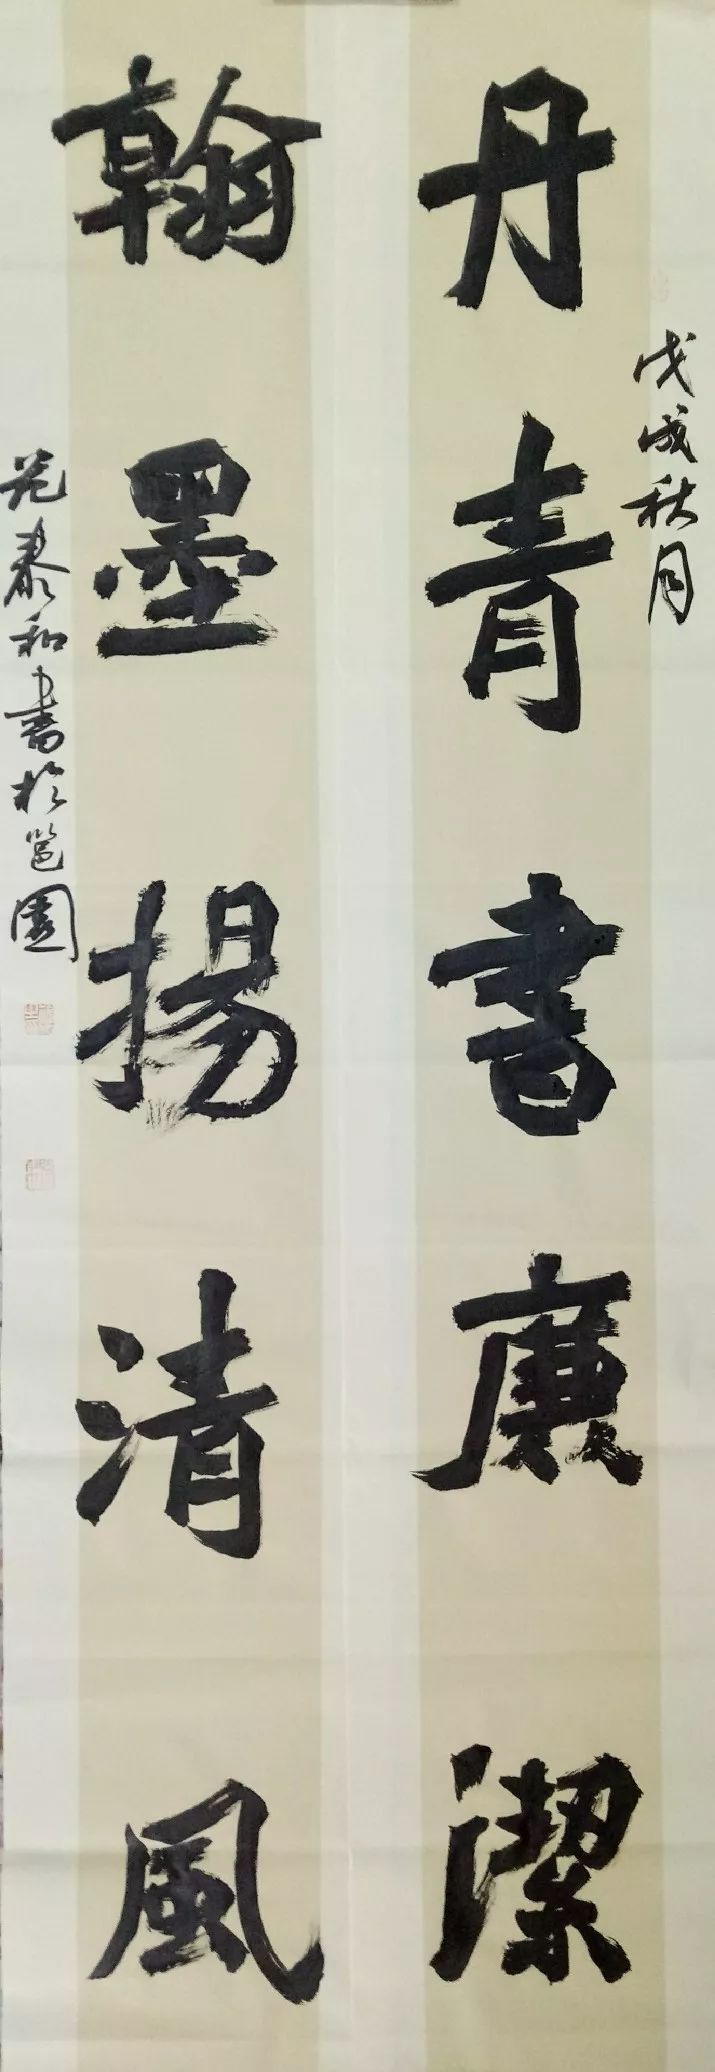 戊戌秋月
丹青書廉潔
翰墨揚清風
范泰和書於邕園